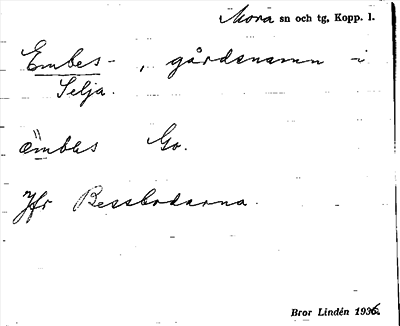 Mora sn och tg, Kopp. l.
Embes- , gårdsnamn i
Selja.
æmbəs Go.
Jfr Bessbodarna.
Bror Lindén 1936.